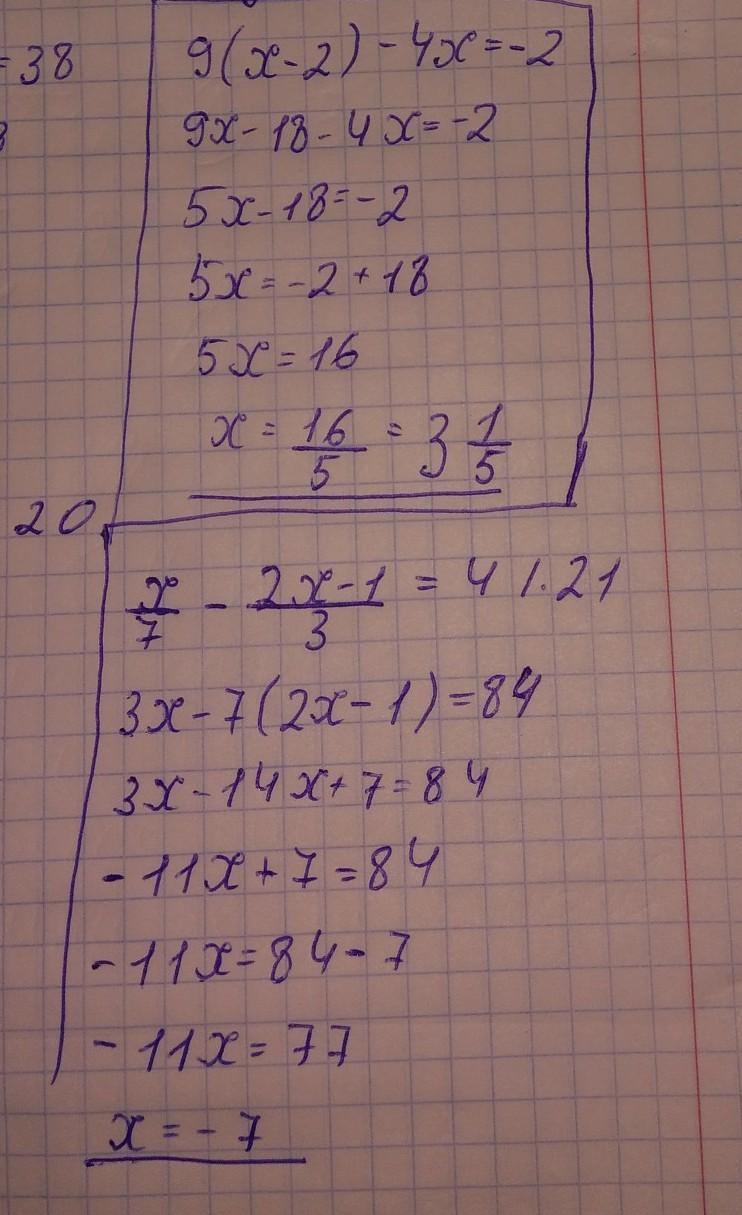 =38
9(x-2)-4x=-2
9x-18-4x=-2
5x-18=-2
5x=-2+18
5x=16
x=16/5=3 1/5
20
x/7 - 2x-1/3 = 4 |·21
3x-7(2x-1)=84
3x-14x+7=84
-11x+7=84
-11x=84-7
-11x=77
x=-7